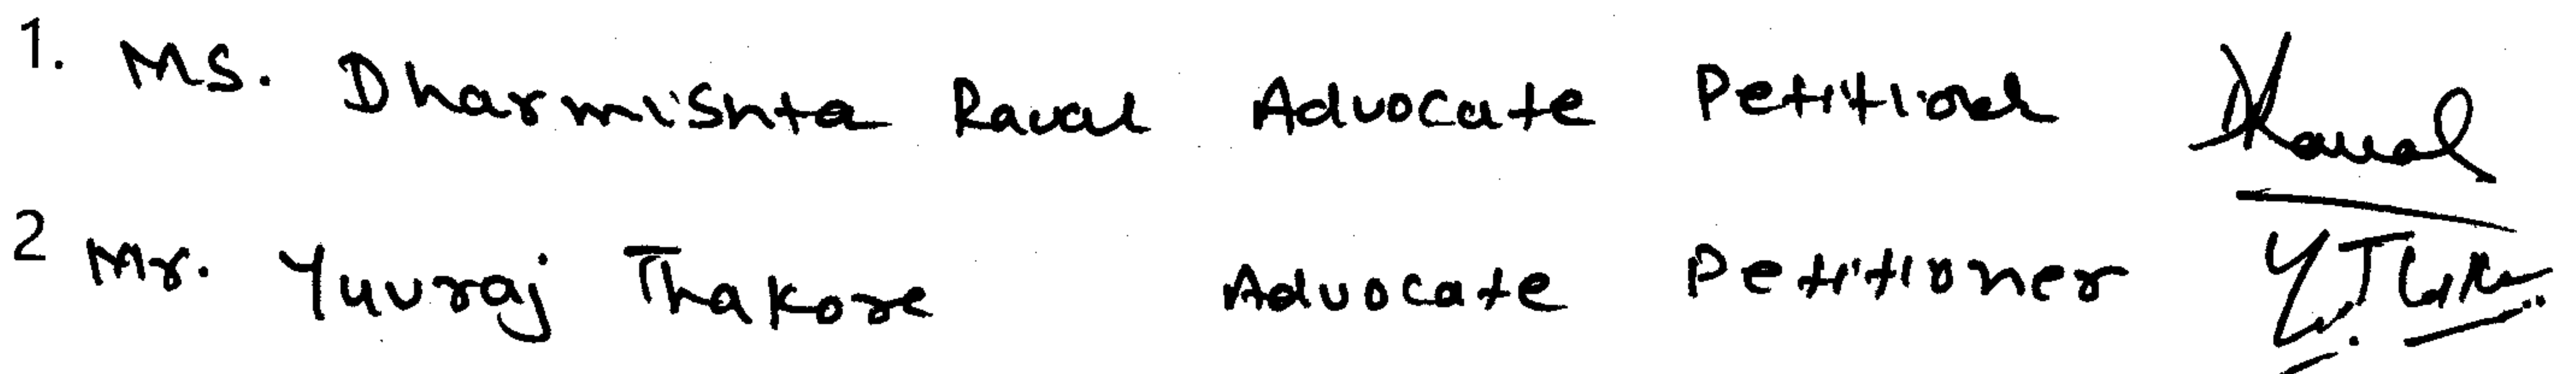 1. Ms. Dharmishta Raval Advocate Petitioner DRaval
2 Mr. Yuvraj Thakore Advocate Petitioner